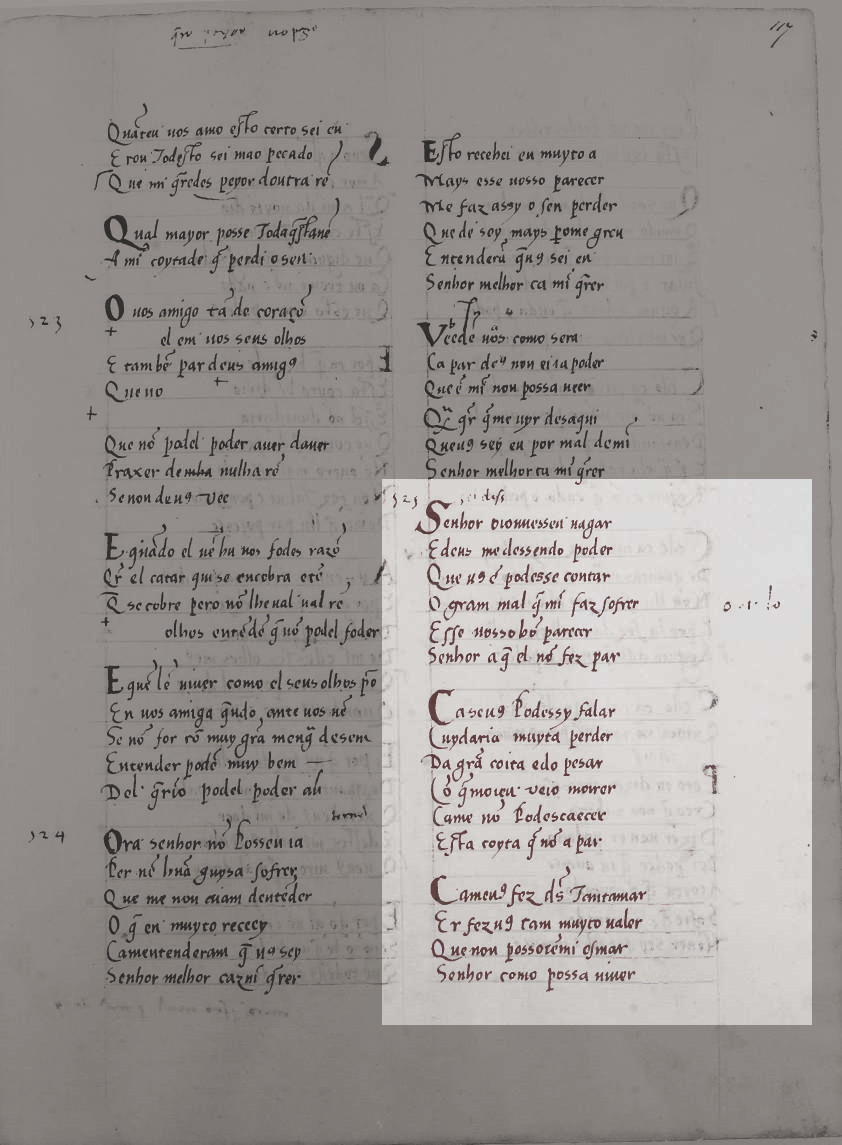 117
Quãteu uos amo esto certo sei eu
E rou Todesto sei mao pecado
Que mi q̃redes peyor doutra rē
Qual mayor posse Todaq̃stane
A mĩ coytade q̃ perdi o sen
323
O uos amigo tã de coraçõ
el em uos seus olhos
E tambẽ par deus amigꝰ
Que no
Que nõ podel poder auer dauer
Praxer demha nulha rẽ
Se non deuꝯ vee
E quãdo el uẽ hu uos sodes razõ
Qr̃ el catar qui se encobra etẽ
Q̃ se cobre pero nõ lheual ual rẽ
olhos entẽdẽ q̃ uõ podel foder
E quẽ lẽ uiuer como el seus olhos põ
En uos amiga q̃udo ante uos uẽ
Se nõ for cõ muy grã mengã desem
Entender podẽ muy bem
Del q̃rio podel poder alĩ
324
Ora senhor nõ Posseu ia
Per nẽ hũa guysa sofrer
Que me non euiam dentẽder
O q̃ eu muyto receey
Camentenderam q̃ uꝯ sey
Senhor melhor cazni q̃rer
Esto recehei eu muyto a
Mays esse uosso parecer
Me faz assy o sen perder
Que de soy mays pome greu
Entenderã q̃uꝯ sei eu
Senhor melhor ca mĩ q̃rer
Veedẽ uõs como sera
Ca par deꝰ non ei ia poder
Que ẽ mĩ non possa ueer
q̃r q̃me uyr desaqui
Queuꝯ sey eu por mal demi
Senhor melhor ca mĩ q̃rer
325
Senhor oionuessen uagar
E deus me dessendo poder
Que uꝯ ẽ podesse contar
O gram mal q̃ mĩ faz sofrer
Esse uosso bõ parecer
Senhor a q̃ el nõ fez par
Ca seuꝯ Podessy falar
Cuydaria muyta perder
Da grã coita edo pesar
Cõ q̃ moieu ueio morrer
Came nõ Podescaecer
Esta coyta q̃ nõ a par
Cameuꝯ fez d̃s Tantamar
Er fezuꝯ tam muyto ualer
Que non possotẽmi osmar
Senhor como possa uiuer